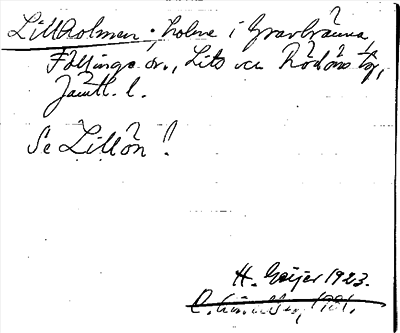 Lillholmen: holme i Gravbränna,
Föllinge sn., Lits och Rödöns tg,
Jämtl. l.
Se Lillön!
H. Geijer 1923.